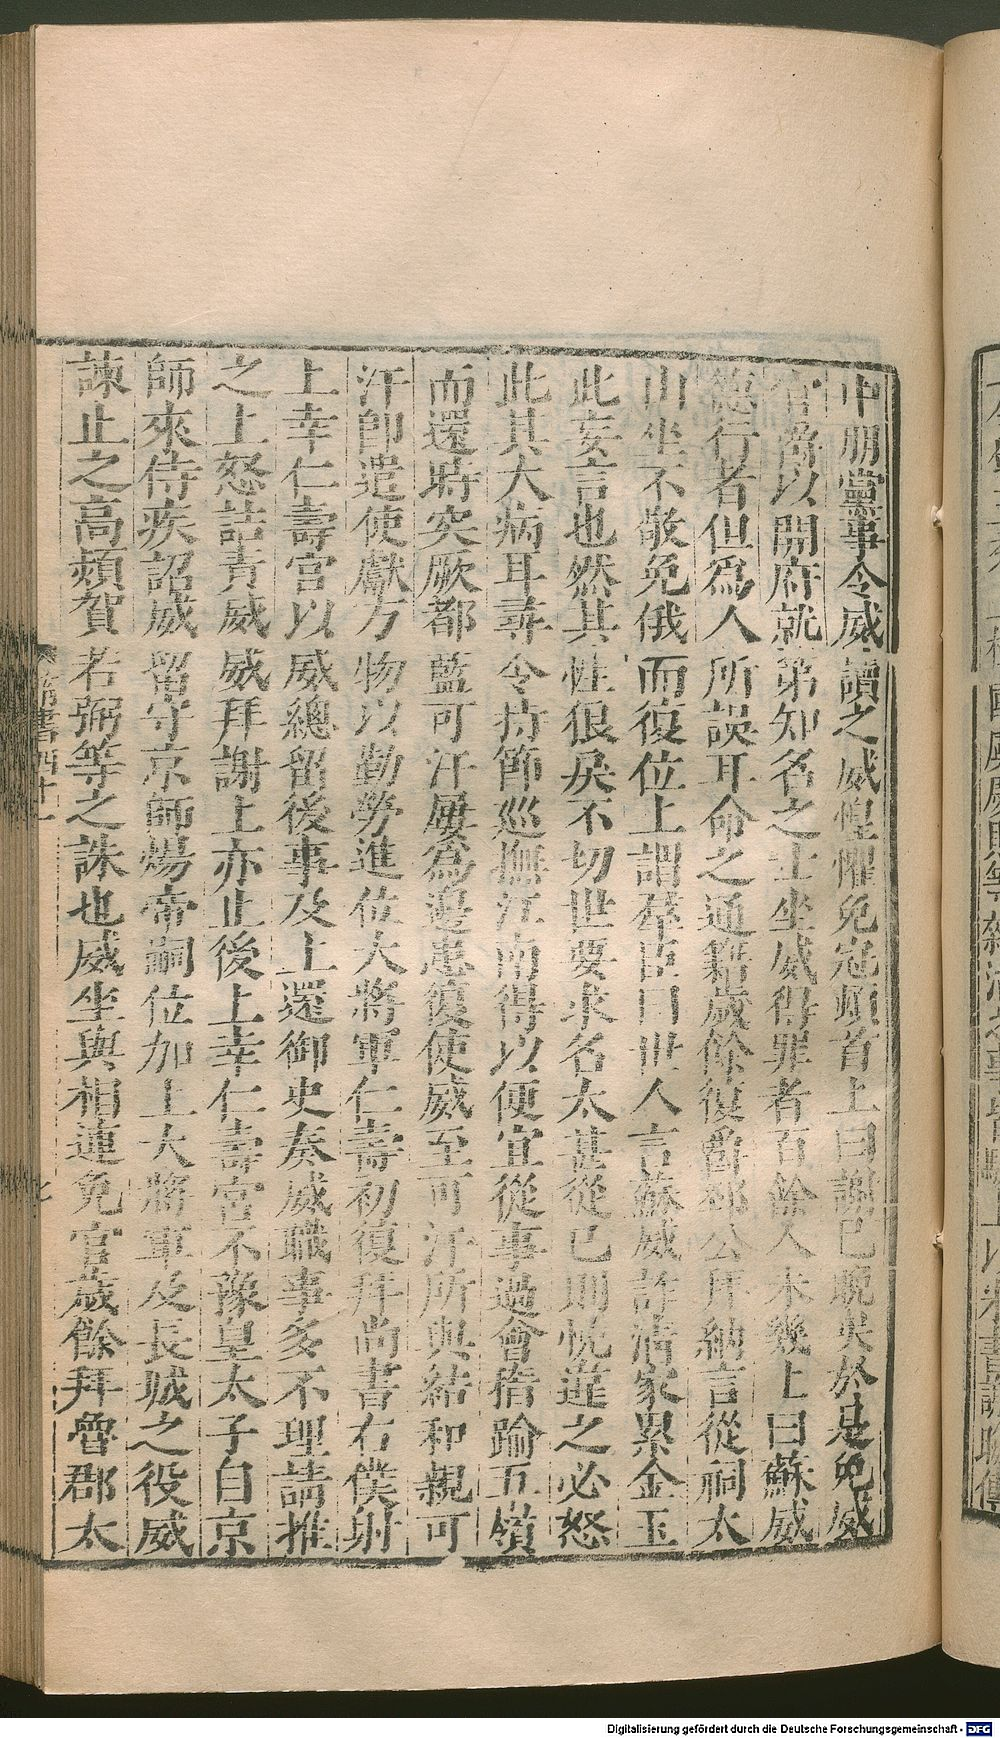 中朋黨事令威讀之威惶懼免冠頓首上曰謝已晚矣於是免威
官爵以開府就第知名之士坐威得罪者百餘人未幾上曰蘇威
德行者但爲人所誤耳命之通籍歲餘復爵邳公拜納言從祠太
山坐不敬免俄而復位上謂羣臣曰世人言蘇威詐清家累金玉
此妄言也然其性狠戾不切世要求名太甚從已則悅違之必怒
此其大病耳尋令持節巡撫江南得以便宜從事過會稽踰五嶺
而還時突厥都藍可汗屢爲邊患復使威至可汗所與結和親可
汗卽遣使獻方物以勤勞進位大將軍仁壽初復拜尚書右僕射
上幸仁壽宮以威總留後事及上還御史奏威職事多不理請推
之上怒詰責威威拜謝上亦止後上幸仁壽宮不豫皇太子自京
師來侍疾詔威留守京師煬帝嗣位加上大將軍及長城之役威
諫止之高熲賀若弼等之誅也威坐與相連免官歲餘拜魯郡太
隋書四十一
七
Digitalisierung gefördert durch die Deutsche Forschungsgemeinschaft - DFG